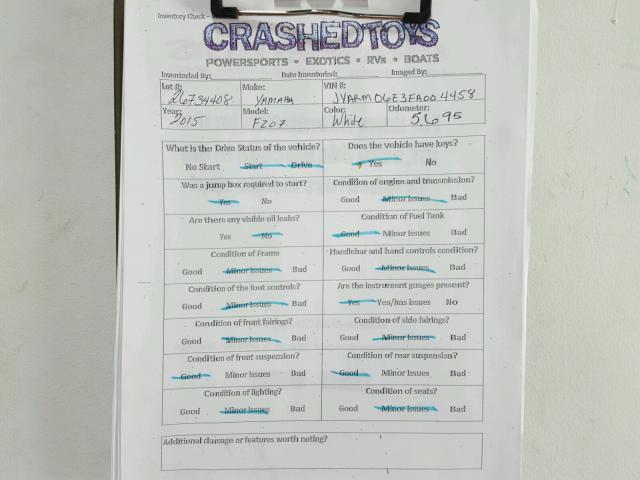 Inventory Check -
CRASHEDTOYS
POWERSPORTS • EXOTICS • RVs • BOATS
Inventoried By: Date Inventoried: Imaged By:
Lot #: Make: VIN #:
26734408 YAMAHA JYARM06E3FA004458
Year: Model: Color: Odometer:
2015 FZ07 White 5695
What is the Drive Status of the vehicle? Does the vehicle have keys?
No Start Start Drive Yes No
Was a jump box required to start? Condition of engine and transmission?
Yes No Good Minor Issues Bad
Are there any visible oil leaks? Condition of Fuel Tank
Yes No Good Minor Issues Bad
Condition of Frame Handlebar and hand controls condition?
Good Minor Issues Bad Good Minor Issues Bad
Condition of the foot controls? Are the instrument guages present?
Good Minor Issues Bad Yes Yes/has issues No
Condition of front fairings? Condition of side fairings?
Good Minor Issues Bad Good Minor Issues Bad
Condition of front suspension? Condition of rear suspension?
Good Minor Issues Bad Good Minor Issues Bad
Condition of lighting? Condition of seats?
Good Minor Issues Bad Good Minor Issues Bad
Additional damage or features worth noting?